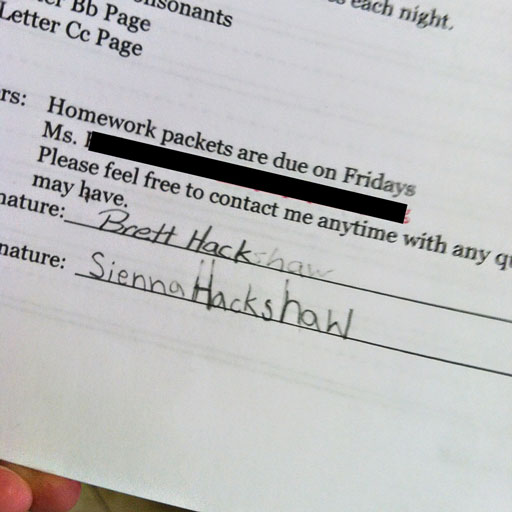 each night.
onsonants
Bb Page
Letter Cc Page
rs: Homework packets are due on Fridays
Ms.
Please feel free to contact me anytime with any qu
may have.
nature: Brett Hackshaw
nature: Sienna Hackshaw